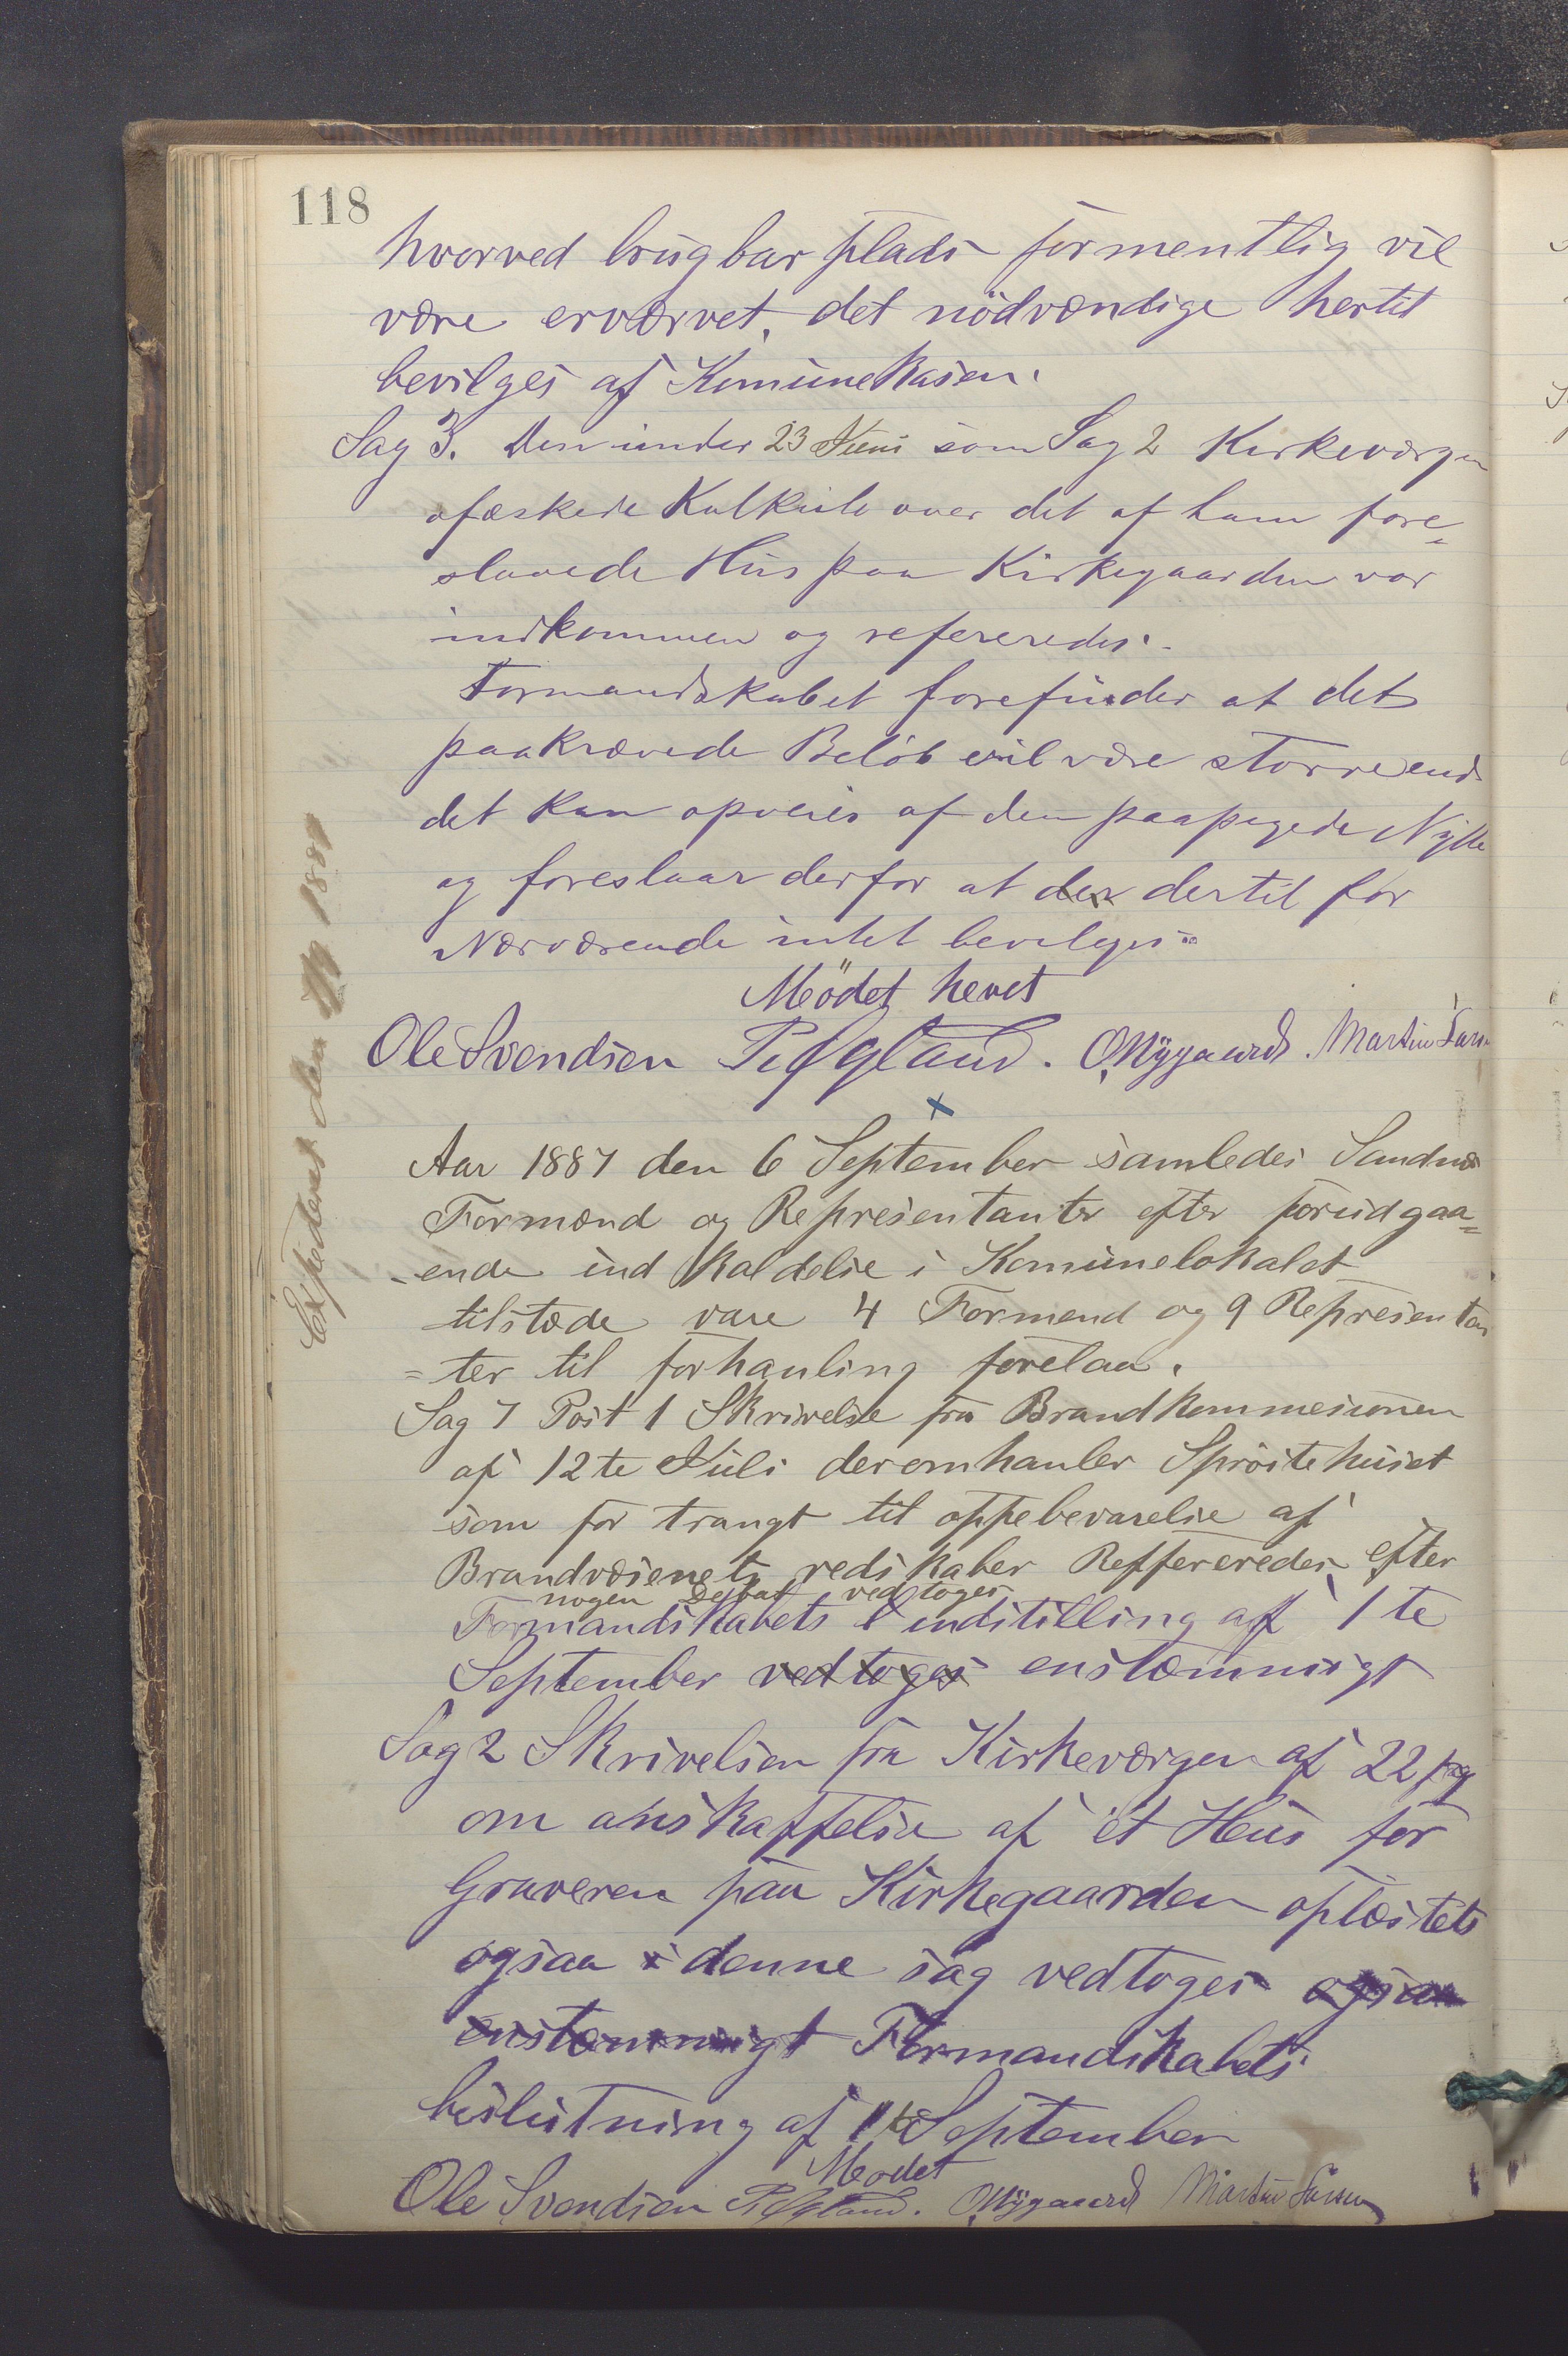 118
hvorved brugbar plads formentlig vil
være erværvet, det nödvændige hertil
bevilges af Komunekasen.
Sag 3. Den under 23 Juni som Sag 2 Kirkeværgen
afæskede Kalkule over det af ham fore-
slaaede Hus paa Kirkegaarden var
indkommen og refereredes.
Formandskabet forefinder at det
paakrævede Belöb vil være större end
det kan opveies af den paapegede Nytte
og foreslaar derfor at der dertil for
Nærværende intet bevilges.
Mödet hevet
Ole Svendsen O. Nygaard. Martin
Aar 1887 den 6 September samledes Sandnes
Formænd og Representanter efter forudgaa=
-ende ind kaldelse i Komunelokalet
tilstæde vare 4 Formend og 9 Represen tan
=ter til forhanling forelaa.
Sag 1 Post 1 Skrivelse fra Brandkommesionen
af 12te Juli deromhanler Spröitehuset
som for trangt til oppebevarelse af
Brandvæsenets redskaber Reffereredes efter
nogen Debat vedtoges
Formandskabets indstilling af 1te
September vedtoges enstæmmigt
Sag 2 Skrivelsen fra Kirkeværgen af 22
om anskaffelse af et Hus for
Graveren paa Kirkegaarden oplæstets
ogsaa i denne sag vedtoges ogsaa
enstæmmigt Formandskabets
beslutning af 1 September
Mødet
Ole Svendsen O. Nygaard Martin Larsen
Expederet den 1887